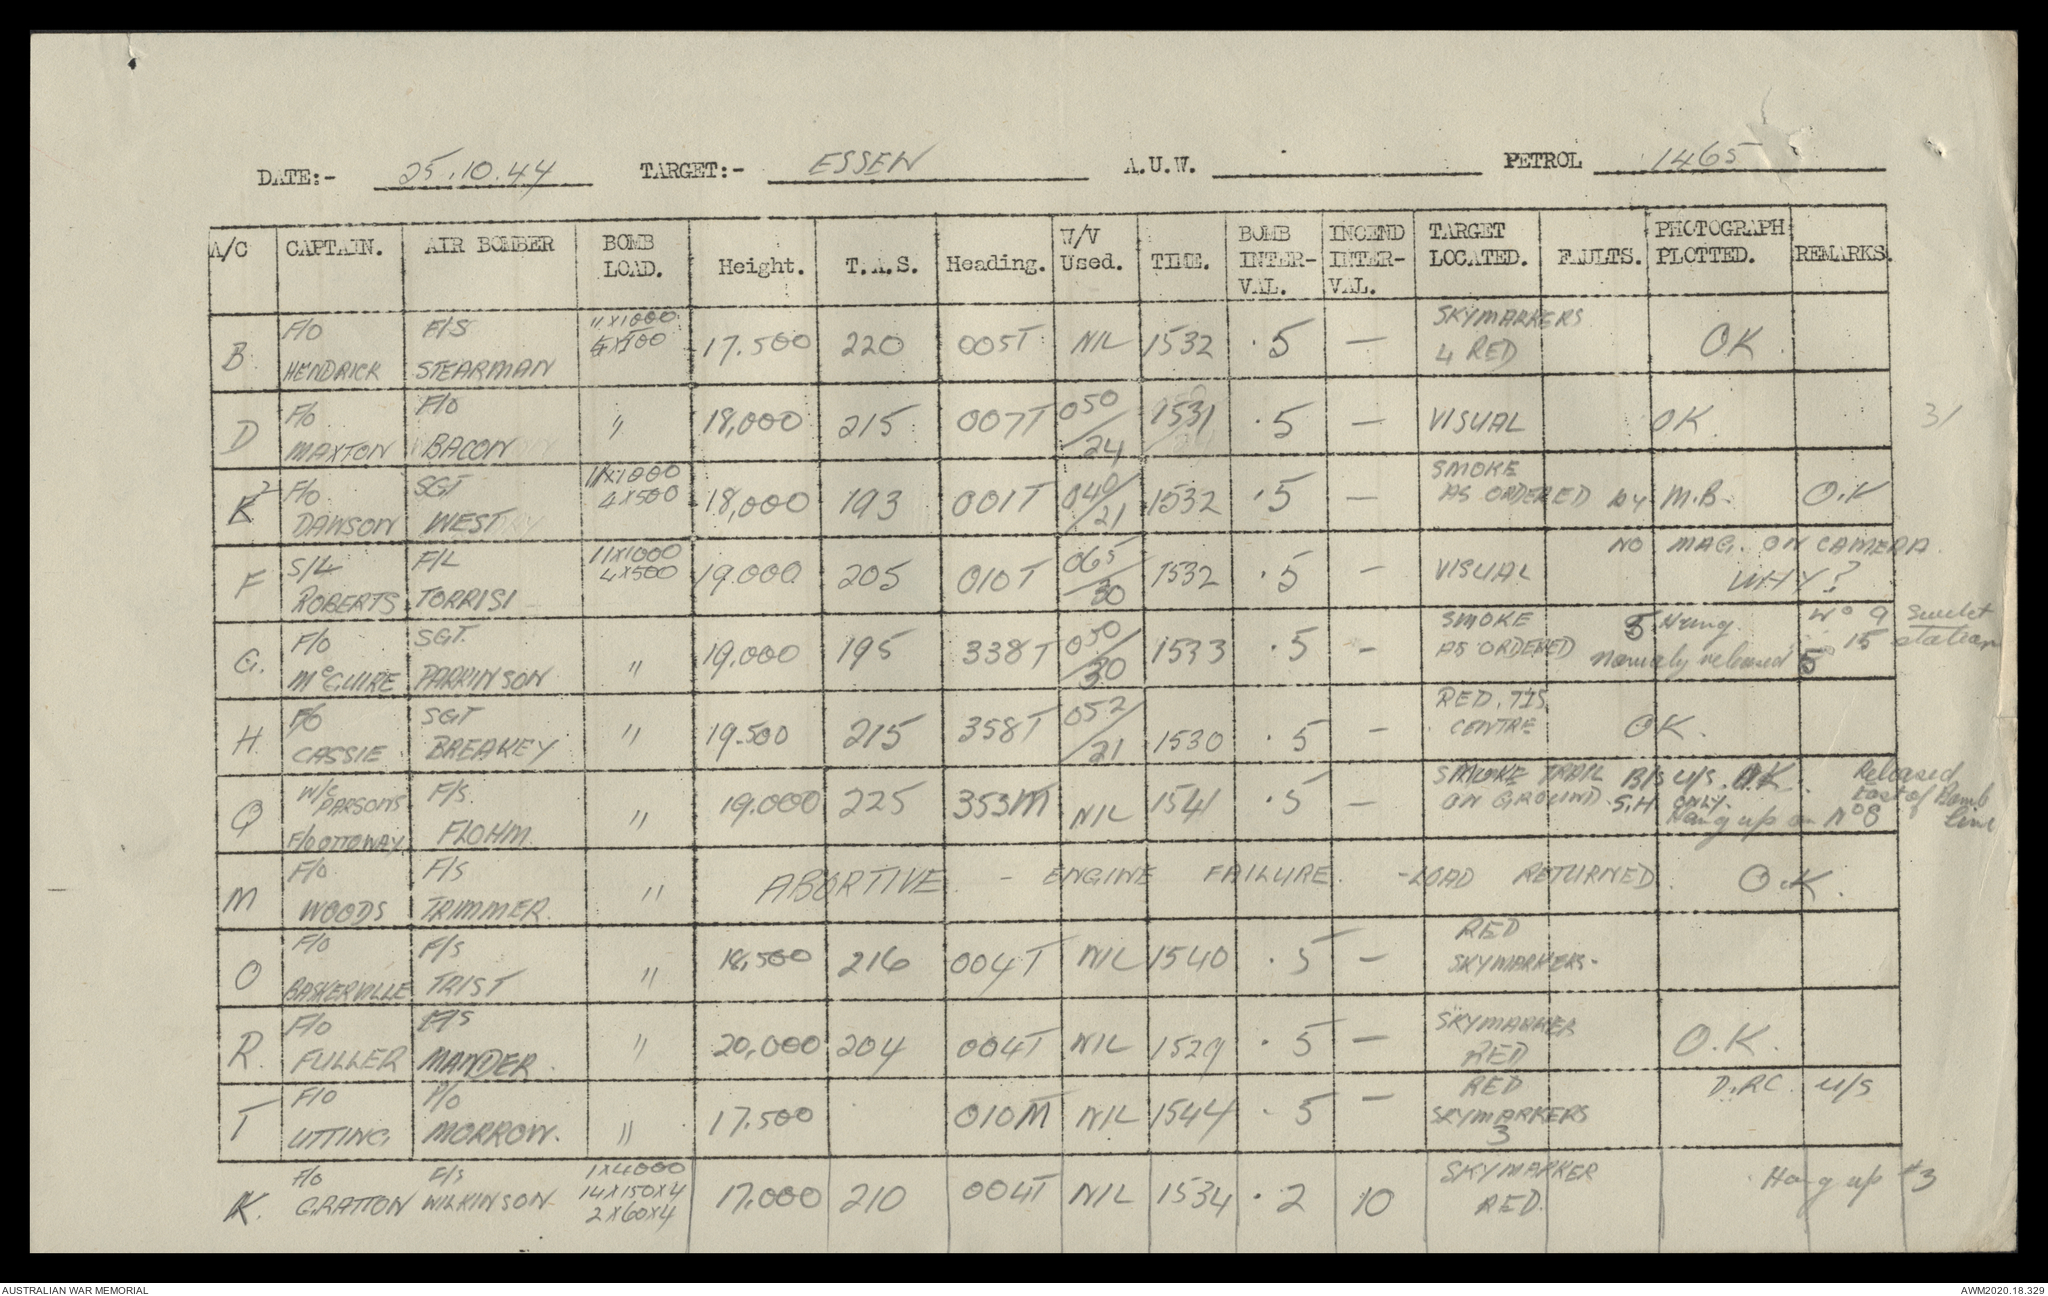 DATE:- 25.10.44 TARGET:- ESSEN A.U.W. PETROL 1465
A/C CAPTAIN. AIR BOMBER BOMB LOAD. Height. T.A.S. Heading. W/V Used. TIME. BOMB INTER-VAL. INCEND INTER-VAL. TARGET LOCATED. FAULTS. PHOTOGRAPH PLOTTED. REMARKS.
B F/O HENDRICK F/S STEARMAN 11x1000 4x500 17.500 220 005T NIL 1532 .5 — SKYMARKERS 4 RED OK
D F/O MAXTON F/O BACON " 18,000 215 007T 050/24 1531 .5 — VISUAL OK
31
K2 F/O DAWSON SGT WEST 11x1000 4x500 18,000 193 001T 040/21 1532 .5 — SMOKE AS ORDERED by M.B. O.K
F S/L ROBERTS F/L TORRISI 11x1000 4x500 19.000 205 010T 065/30 1532 .5 — VISUAL NO MAG. ON CAMERA. WHY?
G. F/O McGUIRE SGT. PARKINSON " 19.000 195 338T 050/30 1533 .5 — SMOKE AS ORDERED 5 Hung. released 5 No 9 15 station
H. F/O CASSIE SGT BREAKEY " 19.500 215 358T 052/21 1530 .5 — RED. TIS. CENTRE OK.
Q W/C PARSONS F/O OTTOWAY. F/S FLOHM. " 19.000 225 353M NIL 1541 .5 — SMOKE TRAIL ON GROUND B/S U/S. O.K. S.H. ONLY. Hang up on No 8 Released East of Bomb line
M F/O WOODS F/S TRIMMER. " ABORTIVE - ENGINE FAILURE. - LOAD RETURNED. O.K.
O F/O BASKERVILLE F/S TRIST " 18,500 216 004T NIL 1540 .5 — RED SKYMARKERS.
R. F/O FULLER F/S MANDER. " 20,000 204 004T NIL 1529 .5 — SKYMARKER RED O.K.
T F/O UTTING P/O MORROW. " 17.500 010M NIL 1544 .5 — RED SKYMARKERS 3 D.R.C. U/S
K. F/O GRATTON F/S WILKINSON 1x4000 14x150x4 2x60x4 17.000 210 004T NIL 1534 .2 10 SKYMARKER RED. Hang up #3
AUSTRALIAN WAR MEMORIAL AWM2020.18.329